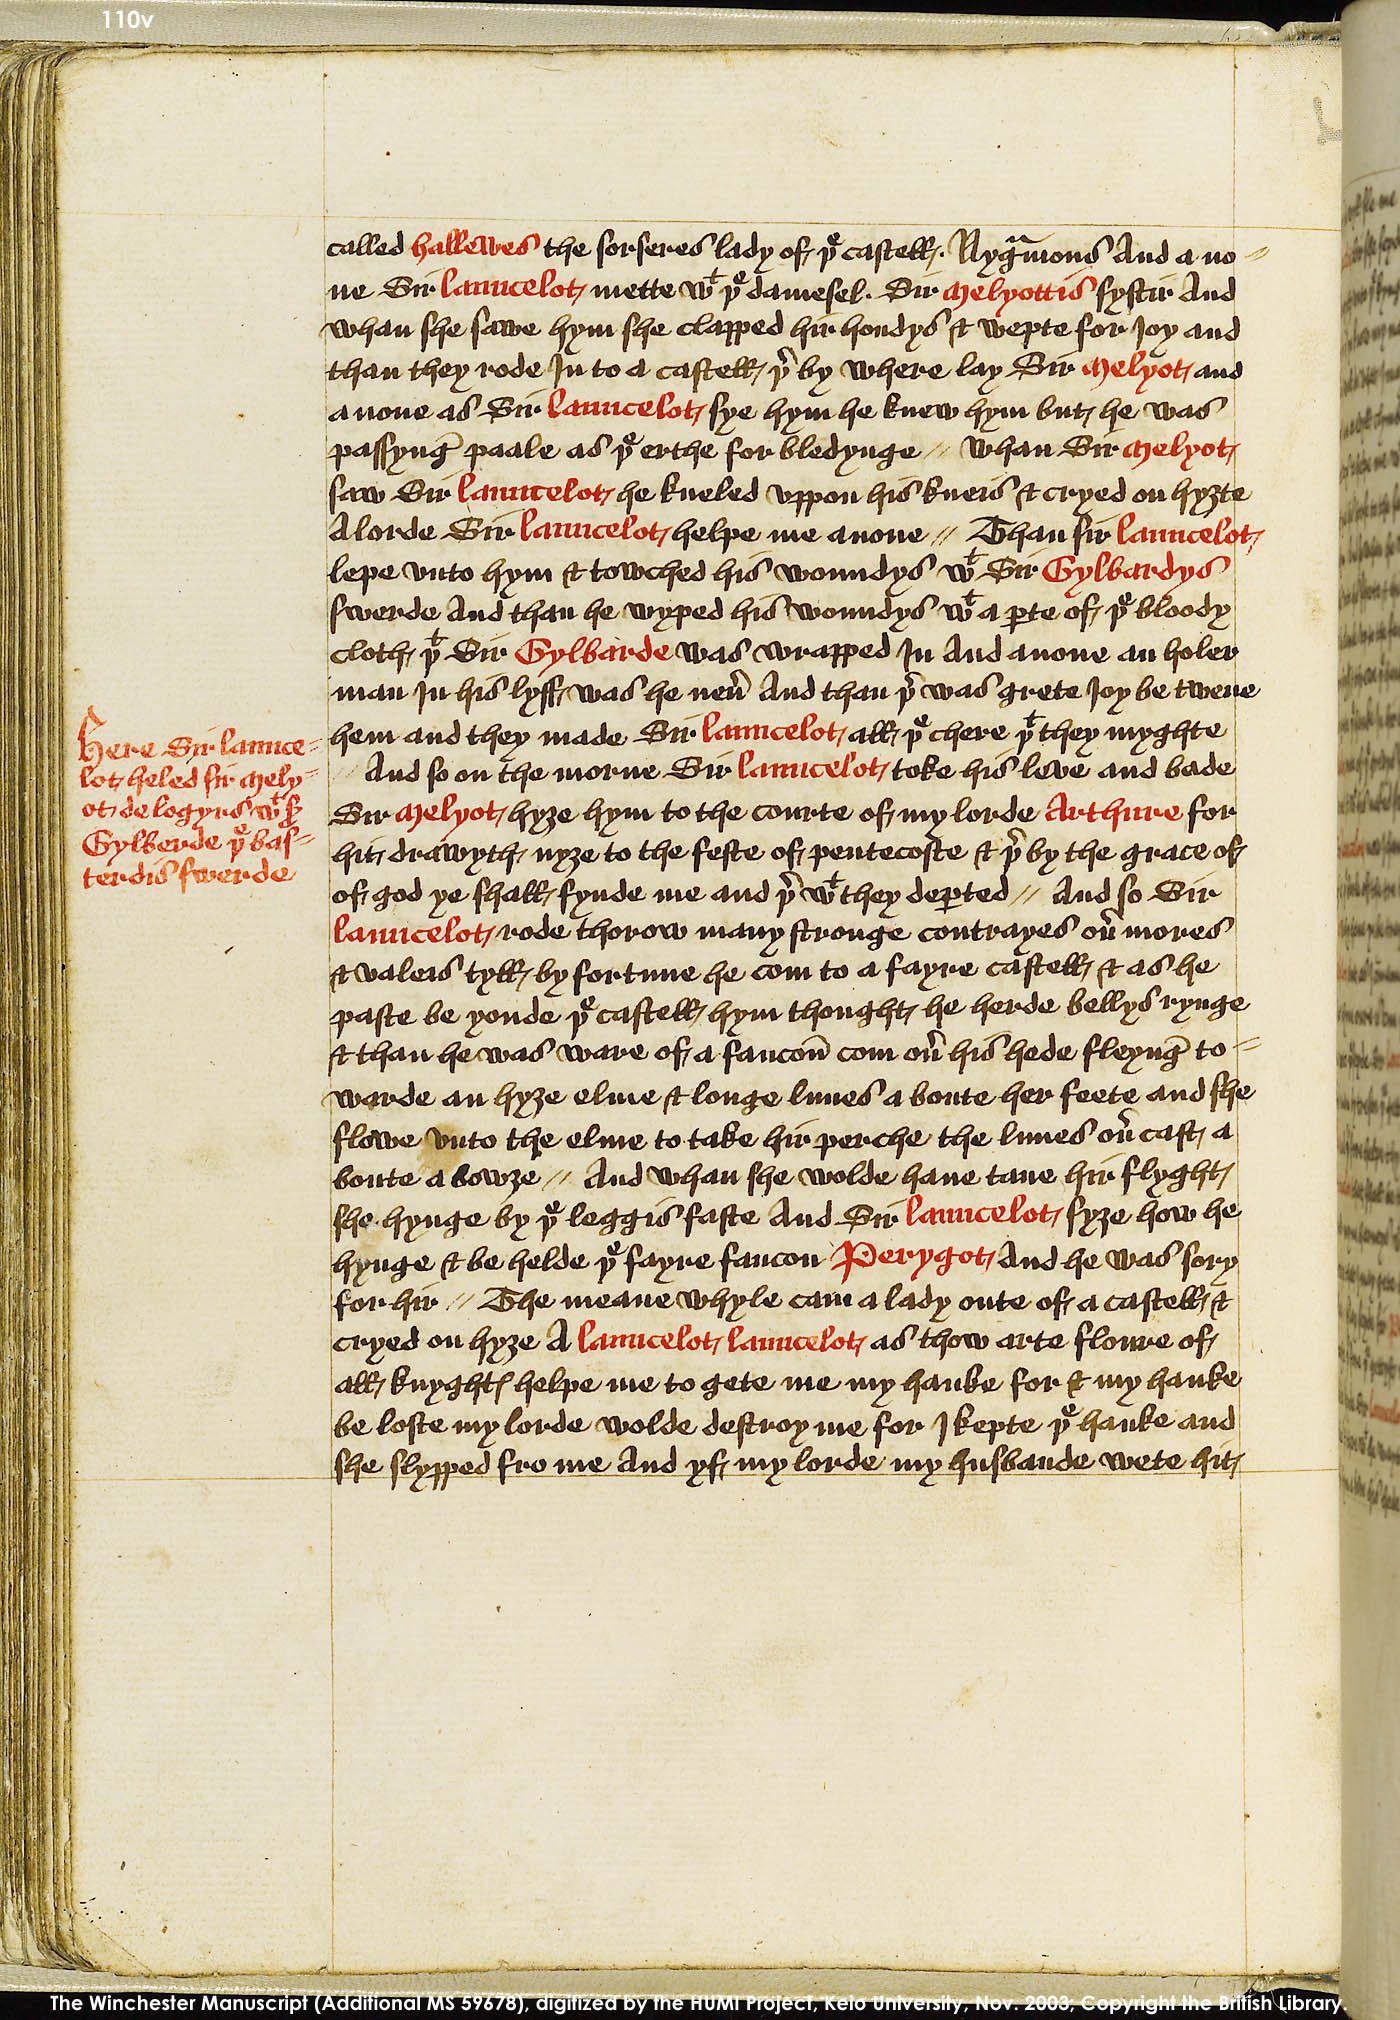 110v
called hallewes the sorseres lady of þe castell. Nygramous And a no=
ne Sir launcelot mette wt þe damesel. Sir Melyottis systir And
whan she sawe hym she clapped hir hondys & wepte for Joy and
than they rode In to a castell þr by where lay Sir Melyot and
anone as Sir launcelot sye hym he knew hym but he was
passyng paale as þe erthe for bledynge // whan Sir Melyot
saw Sir launcelot he kneled vppon his kneis & cryed on hyȝte
A lorde Sir launcelot helpe me anone // Than sir launcelot
lepe vnto hym & towched his woundys wt Sir Gylbardys
swerde And than he wyped his woundys wt a ꝑte of þe bloody
cloth þt Sir Gylbarde was wrapped In And anone an holer
man In his lyff was he neũ And than þr was grete Joy be twene
hem and they made Sir launcelot all þe chere þt they myghte
// And so on the morne Sir launcelot toke his leve and bade
Sir Melyot hyȝe hym to the courte of my lorde Arthure for
hit drawyth nyȝe to the feste of pentecoste & þr by the grace of
of god ye shall fynde me and þr wt they deꝑted // And so Sir
launcelot rode thorow many stronge contrayes oũ mores
& valeis tyll by fortune he com to a fayre castell & as he
paste be yonde þe castell hym thought he herde bellys rynge
& than he was ware of a faucon̄ com oũ his hede fleyng̃ to=
warde an hyȝe elme & longe lunes a boute her feete and she
flowe vnto the elme to take hir perche the lunes oũ cast a
boute a bowȝe // And whan she wolde haue tane hir flyght
she hynge by þe leggis faste And Sir launcelot syȝe how he
hynge & be helde þe fayre faucon Perygot And he was sory
for hir // The meane whyle cam a lady oute of a castell &
cryed on hyȝe A launcelot launcelot as thow arte floure of
all knyghtꝭ helpe me to gete me my hauke for & my hauke
be loste my lorde wolde destroy me for I kepte þe hauke and
she slypped fro me And yf my lorde my husbande wete hit
Here Sir launce=
lot heled sir Mely=
ot de logyrs wt sꝭ
Gylberde þe bas=
terdis swerde
The Winchester Manuscript (Additional MS 59678), digitized by the HUMI Project, Keio University, Nov. 2003; Copyright the British Library.